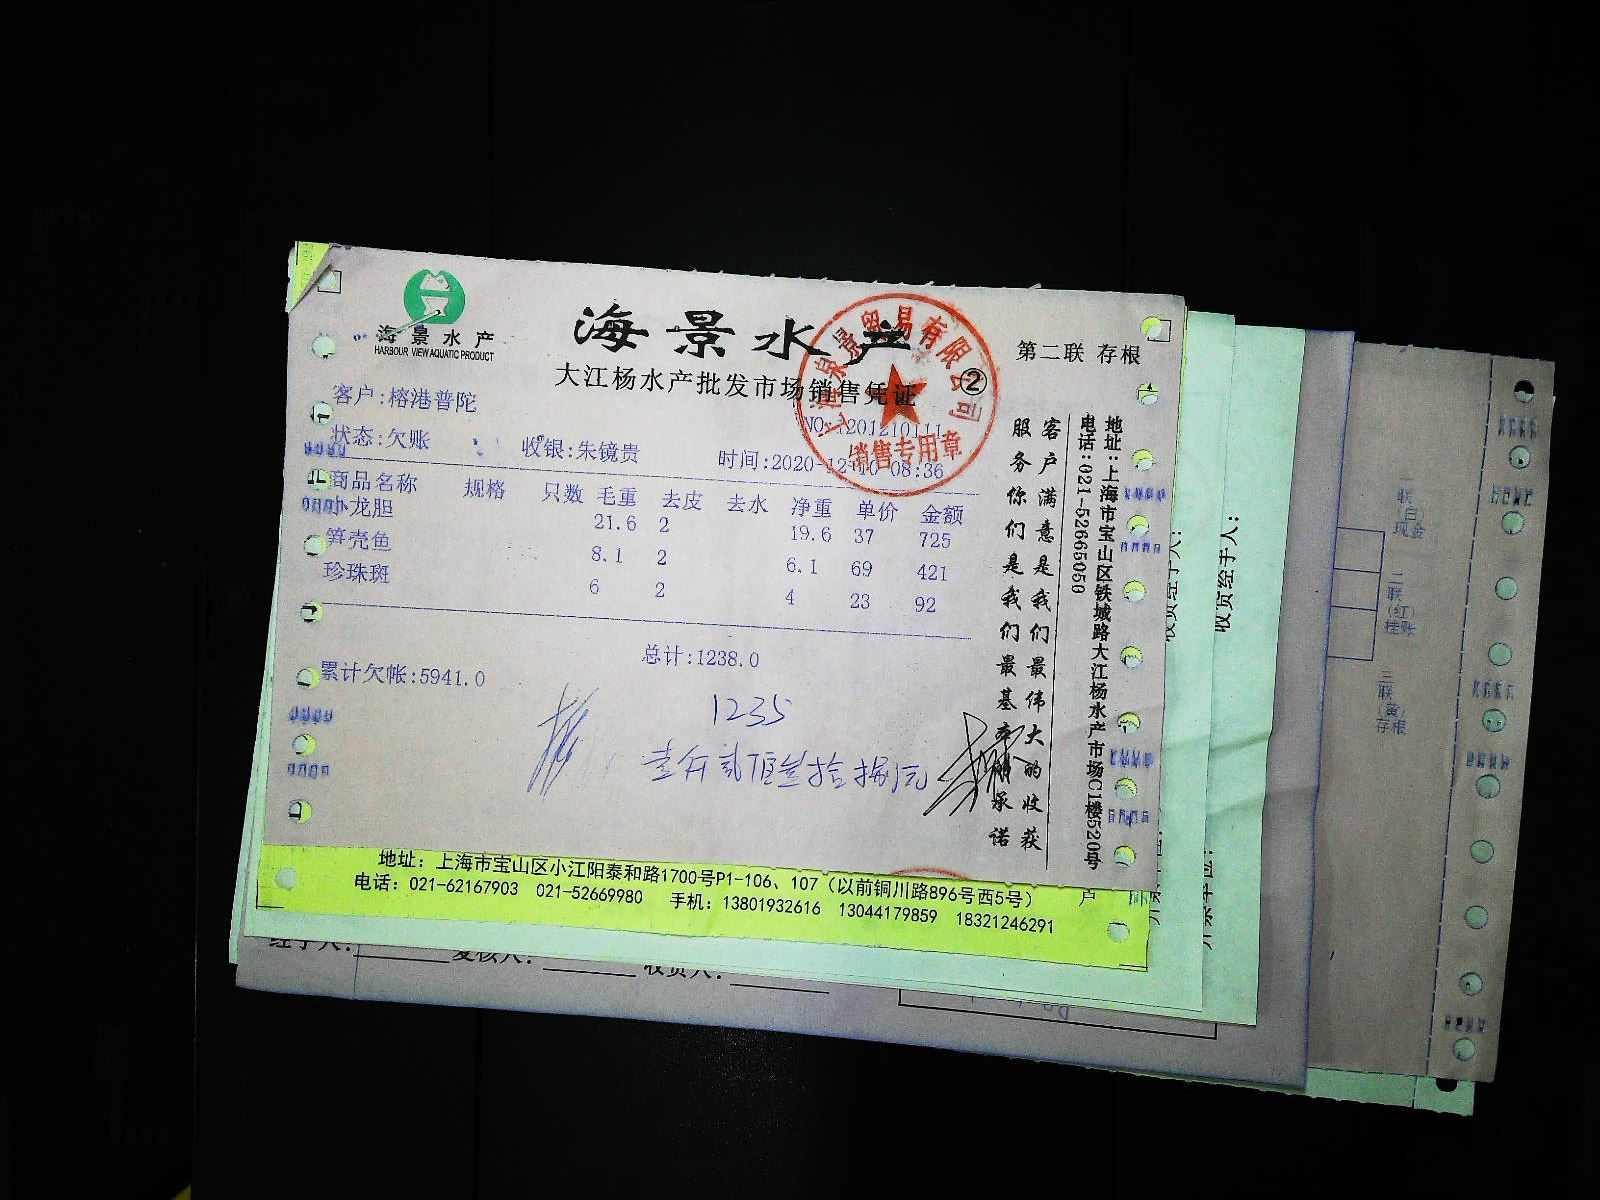 海景水产
HARBOUR VIEW AQUATIC PRODUCT
海景水产
大江杨水产批发市场销售凭证
②
第二联 存根
景贸易有限公司
销售专用章
客户:榕港普陀
NO.:201210111
状态:欠账 收银:朱镜贵 时间:2020-12-10 08:36
商品名称 规格 只数 毛重 去皮 去水 净重 单价 金额
小龙胆 21.6 2 19.6 37 725
笋壳鱼 8.1 2 6.1 69 421
珍珠斑 6 2 4 23 92
总计:1238.0
累计欠帐:5941.0
1235
壹仟贰佰叁拾捌元
客户满意是我们最伟大的收获
服务你们是我们最基本的承诺
地址:上海市宝山区铁城路大江杨水产市场C1楼520号
电话:021-52665050
地址：上海市宝山区小江阳泰和路1700号P1-106、107（以前铜川路896号西5号）
电话：021-62167903 021-52669980 手机：13801932616 13044179859 18321246291
户
经手人: 复核人: 收货人:
收货经手人:
收货经手人:
一联(白)现金
二联(红)挂账
三联(黄)存根